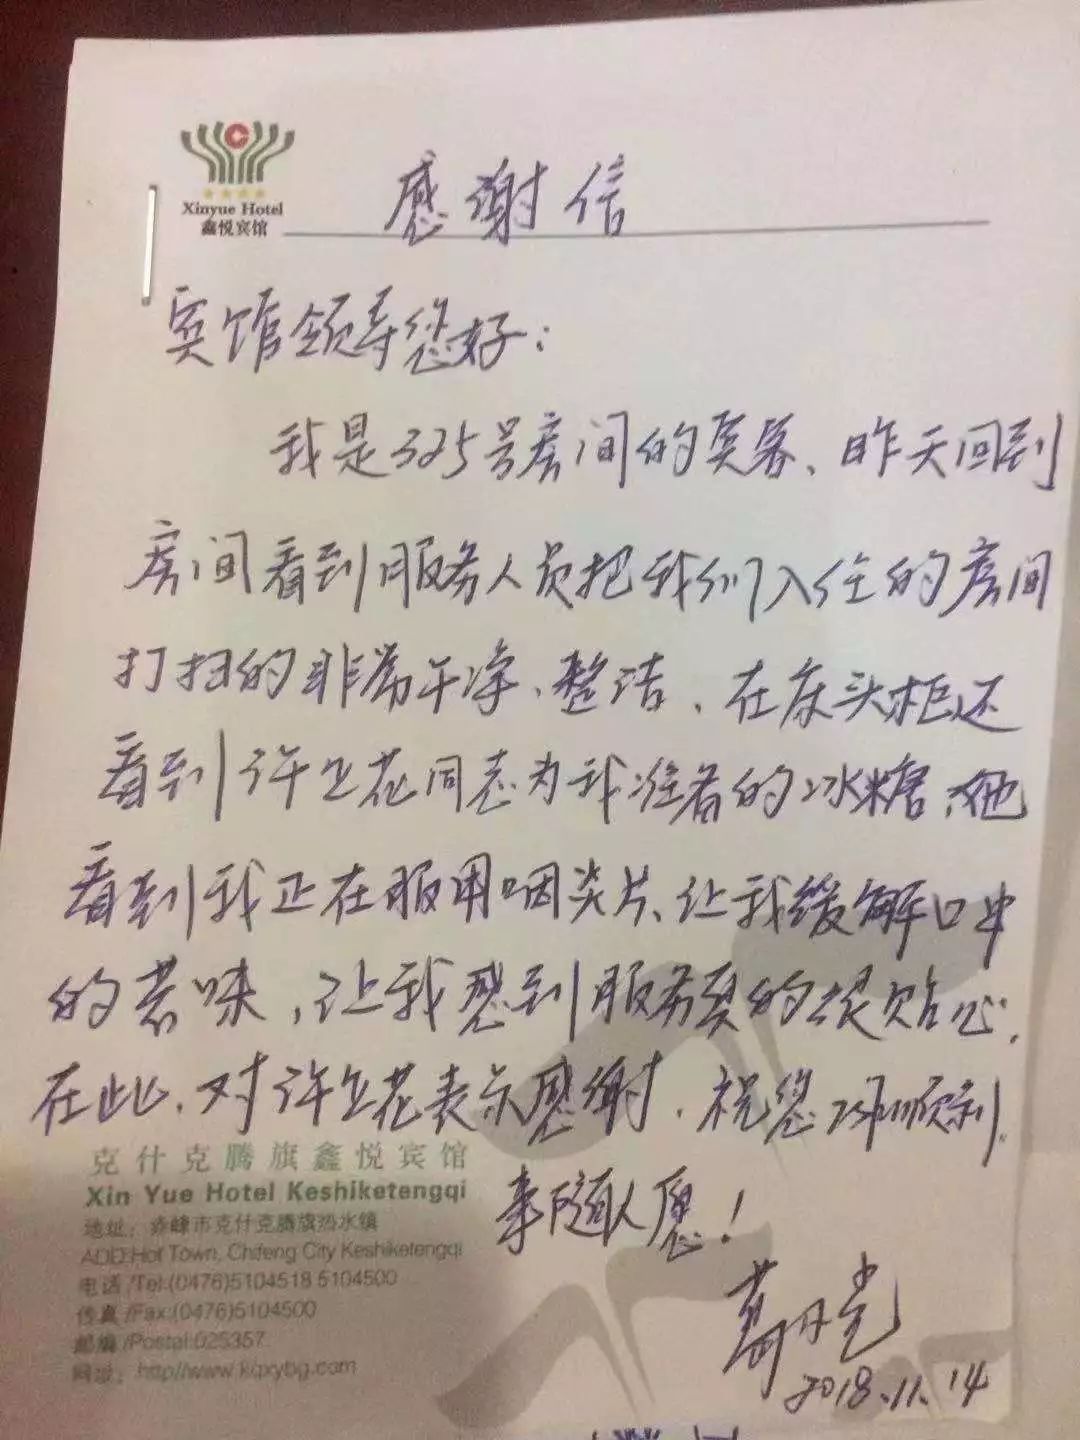 Xinyue Hotel
鑫悦宾馆
感谢信
宾馆领导您好:
我是325号房间的宾客、昨天回到
房间看到服务人员把我们入住的房间
打扫的非常干净、整洁、在床头柜还
看到许立花同志为我准备的冰糖、她
看到我正在服用咽炎片、让我缓解口中
的苦味,让我感到服务真的很贴心.
在此、对许立花表示感谢、祝您工作顺利、
事随人愿!
2018.11.14
克什克腾旗鑫悦宾馆
Xin Yue Hotel Keshiketengqi
地址:赤峰市克什克腾旗热水镇
ADD:Hot Town, Chifeng City Keshiketengqi
电话/Tel:(0476)5104518 5104500
传真/Fax:(0476)5104500
邮编/Postal:025357
网址:http//www.kqxybg.com